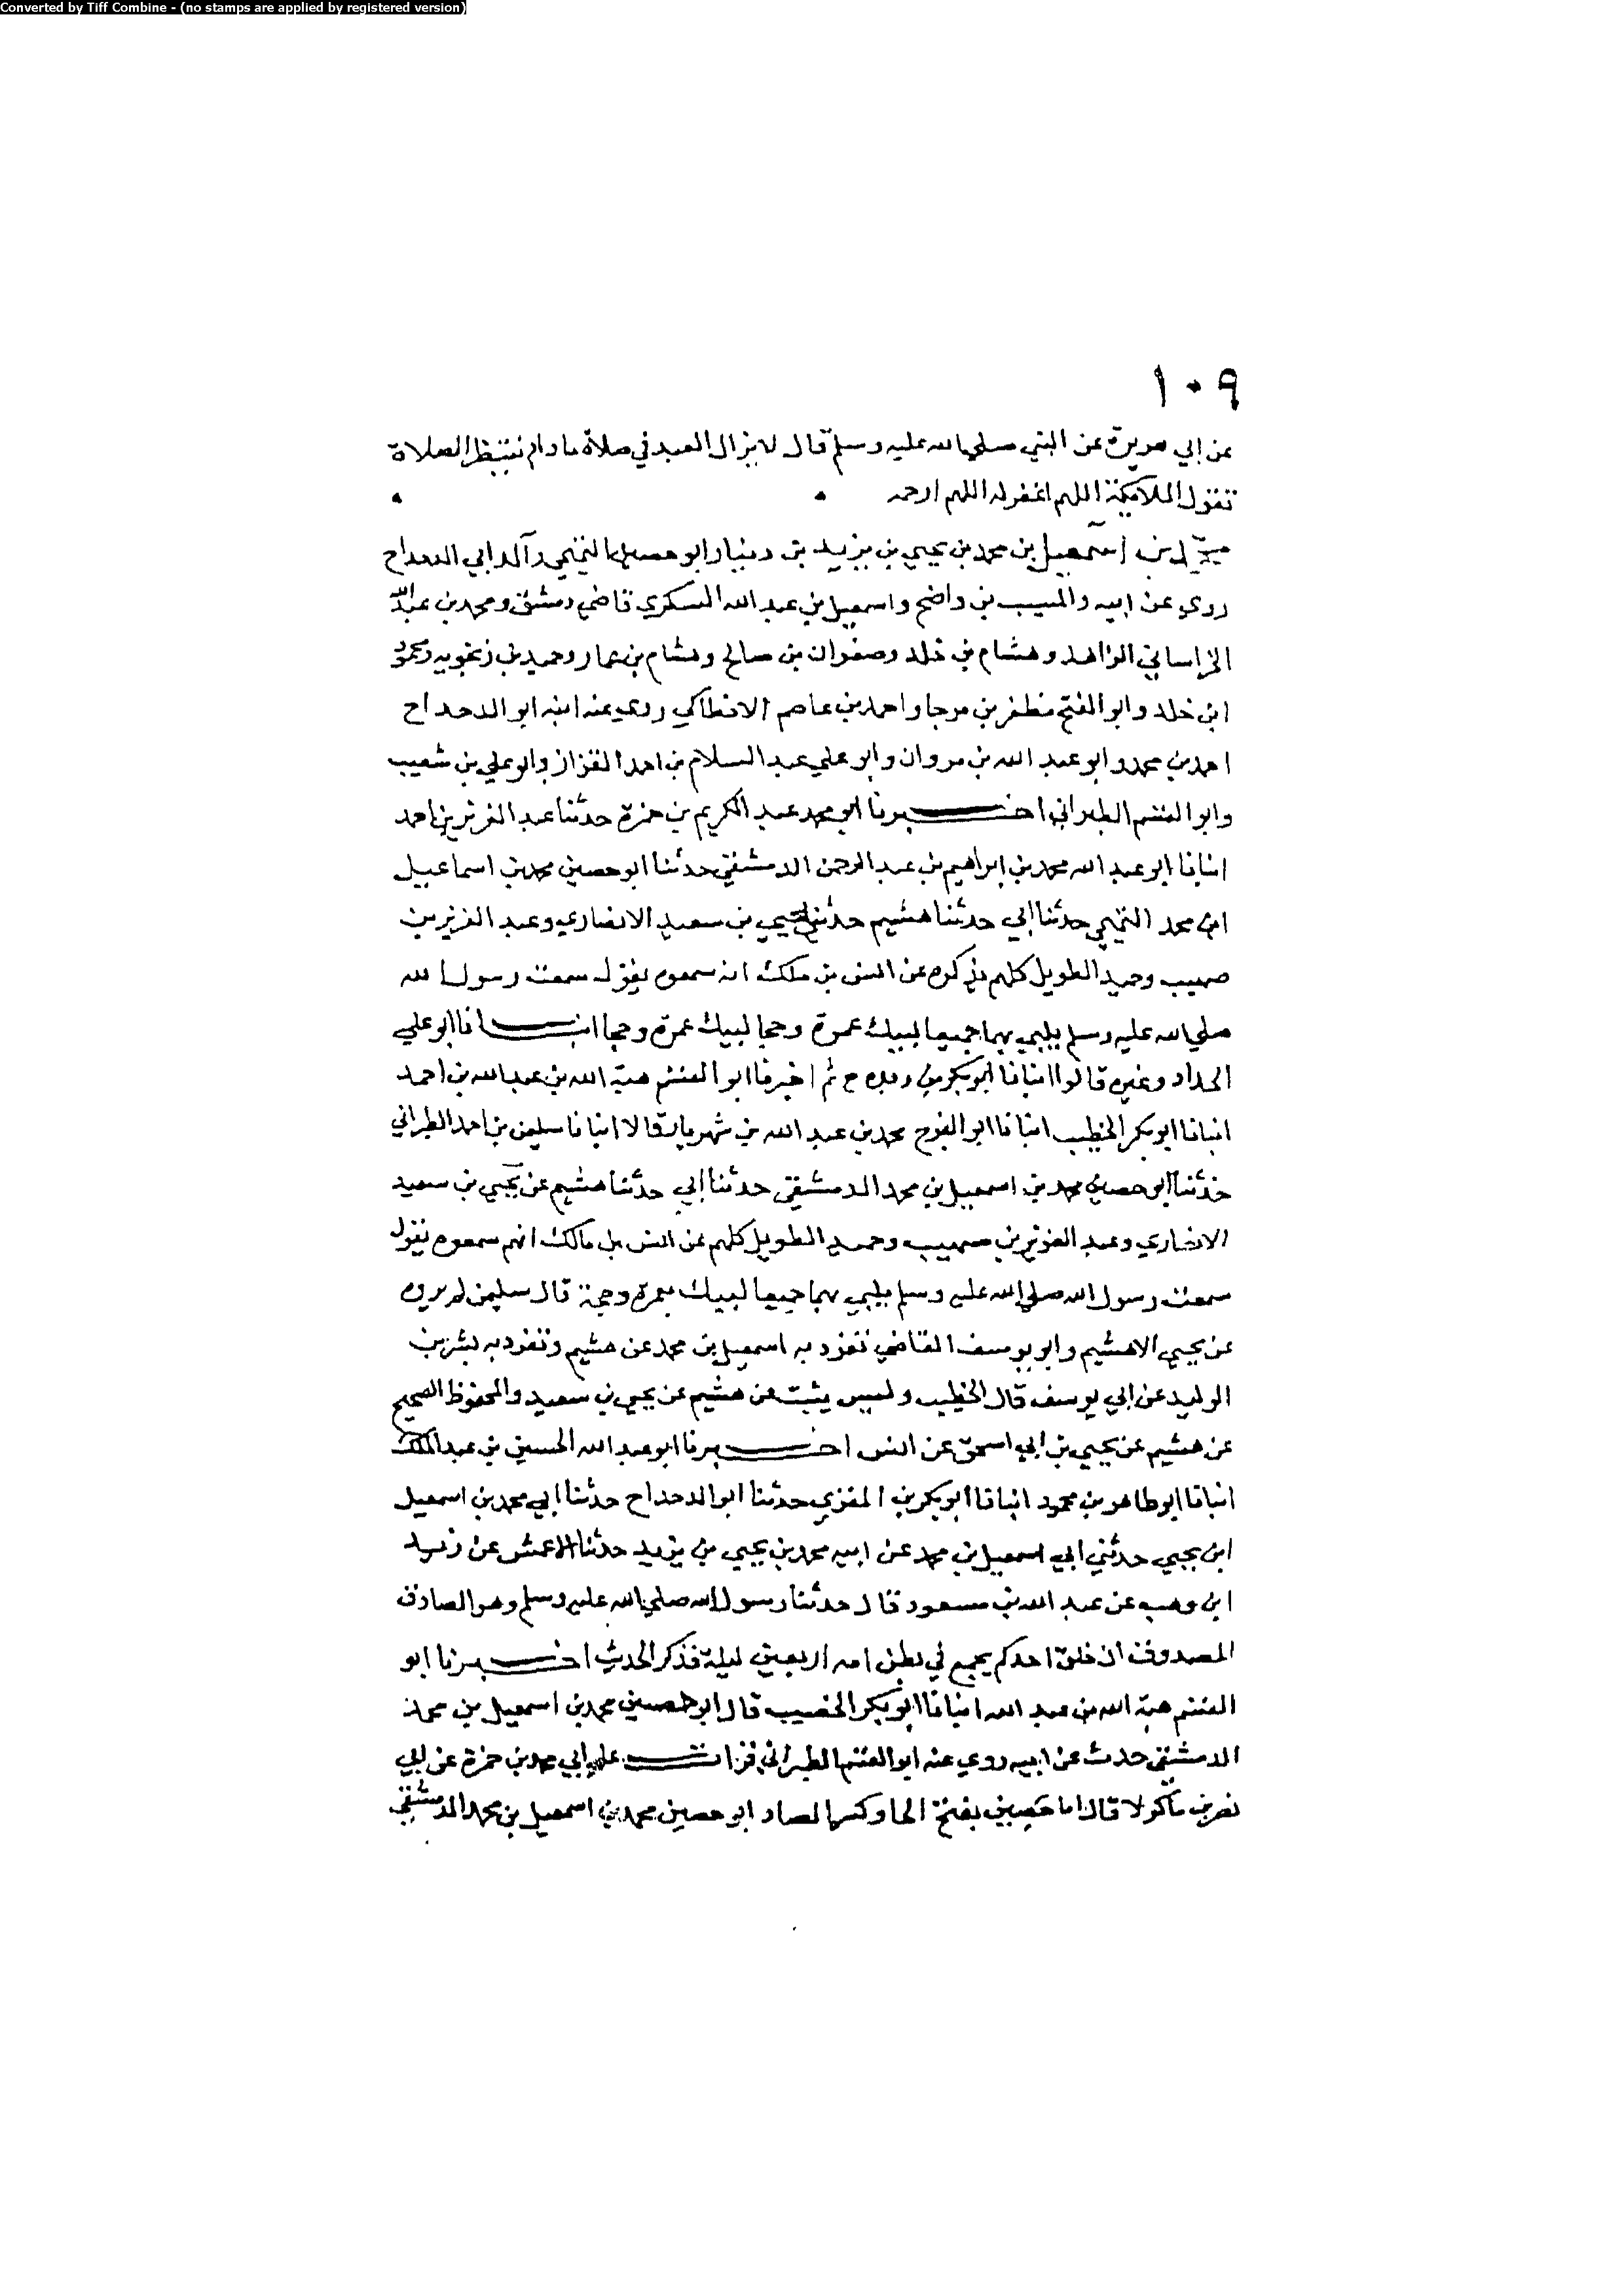 Converted by Tiff Combine - (no stamps are applied by registered version)
١٠٩
عن ابي هريرة عن النبي صلى الله عليه وسلم قال لا يزال العبد في صلاة ما دام ينتظر الصلاة
تقول الملائكة اللهم اغفر له اللهم ارحمه
محمد بن اسمعيل بن محمد بن يحيي بن يزيد بن دينار ابو حصين التميمي والد ابي الدحداح
روي عن ابيه والمسيب بن واضح واسمعيل بن عبد الله السكري قاضي دمشق ومحمد بن عبد الله
الخراساني الزاهد وهشام بن خلد وصفوان بن صالح وهشام بن عمار وحميد بن زنجويه ومحمود
ابن خلد وابو الفتح مظفر بن مرجا واحمد بن عاصم الانطاكي روى عنه ابنه ابو الدحداح
احمد بن محمد وابو عبد الله بن مروان وابو علي عبد السلام بن احمد القزاز وابو علي بن شعيب
وابو القسم الطبراني اخبرنا ابو محمد عبد الكريم بن حمزة حدثنا عبد العزيز بن احمد
انبانا ابو عبد الله محمد بن ابراهيم بن عبد الرحمن الدمشقي حدثنا ابو حصين محمد بن اسماعيل
ابن محمد التميمي حدثنا ابي حدثنا هشيم حدثنا يحيي بن سعيد الانصاري وعبد العزيز بن
صهيب وحميد الطويل كلهم يذكره عن انس بن ملك انه سمعوه يقول سمعت رسول الله
صلي الله عليه وسلم يلبي بهما جميعا لبيك عمرة وحجا لبيك عمرة وحجا انبانا ابو علي
الحداد وغيره قالوا انبانا ابو بكر بن ريده ح ثم اخبرنا ابو القسم هبة الله بن عبد الله بن احمد
انبانا ابو بكر الخطيب انبانا ابو الفرج محمد بن عبد الله بن شهريار قالا انبانا سليمن بن احمد الطبراني
حدثنا ابو حصين محمد بن اسمعيل بن محمد الدمشقي حدثنا ابي حدثنا هشيم عن يحيي بن سعيد
الانصاري وعبد العزيز بن صهيب وحميد الطويل كلهم عن انس بن مالك انهم سمعوه يقول
سمعت رسول الله صلي الله عليه وسلم يلبي بهما جميعا لبيك بعمرة وحجة قال سليمن لم يروه
عن يحيي الا هشيم وابو يوسف القاضي تفرد به اسمعيل بن محمد عن هشيم وتفرد به بشر بن
الوليد عن ابي يوسف قال الخطيب وليس يثبت عن هشيم عن يحيي بن سعيد والمحفوظ الصحيح
عن هشيم عن يحيي بن ابي اسحق عن انس اخبرنا ابو عبد الله الحسين بن عبد الملك
انبانا ابو طاهر بن محمود انبانا ابو بكر بن المقري حدثنا ابو الدحداح حدثنا ابي محمد بن اسمعيل
ابن يحيي حدثني ابي اسمعيل بن محمد عن ابيه محمد بن يحيي بن يزيد حدثنا الاعمش عن زيد
ابن وهب عن عبد الله بن مسعود قال حدثنا رسول الله صلي الله عليه وسلم وهو الصادق
المصدوق ان خلق احدكم يجمع في بطن امه اربعين ليلة فذكر الحديث اخبرنا ابو
القسم هبة الله بن عبد الله انبانا ابو بكر الخطيب قال ابو حصين محمد بن اسمعيل بن محمد
الدمشقي حدث عن ابيه روي عنه ابو القسم الطبراني قرات علي ابي محمد بن حمزة عن ابي
نصر بن ماكولا قال اما حصين بفتح الحا وكسر الصاد ابو حصين محمد بن اسمعيل بن محمد الدمشقي